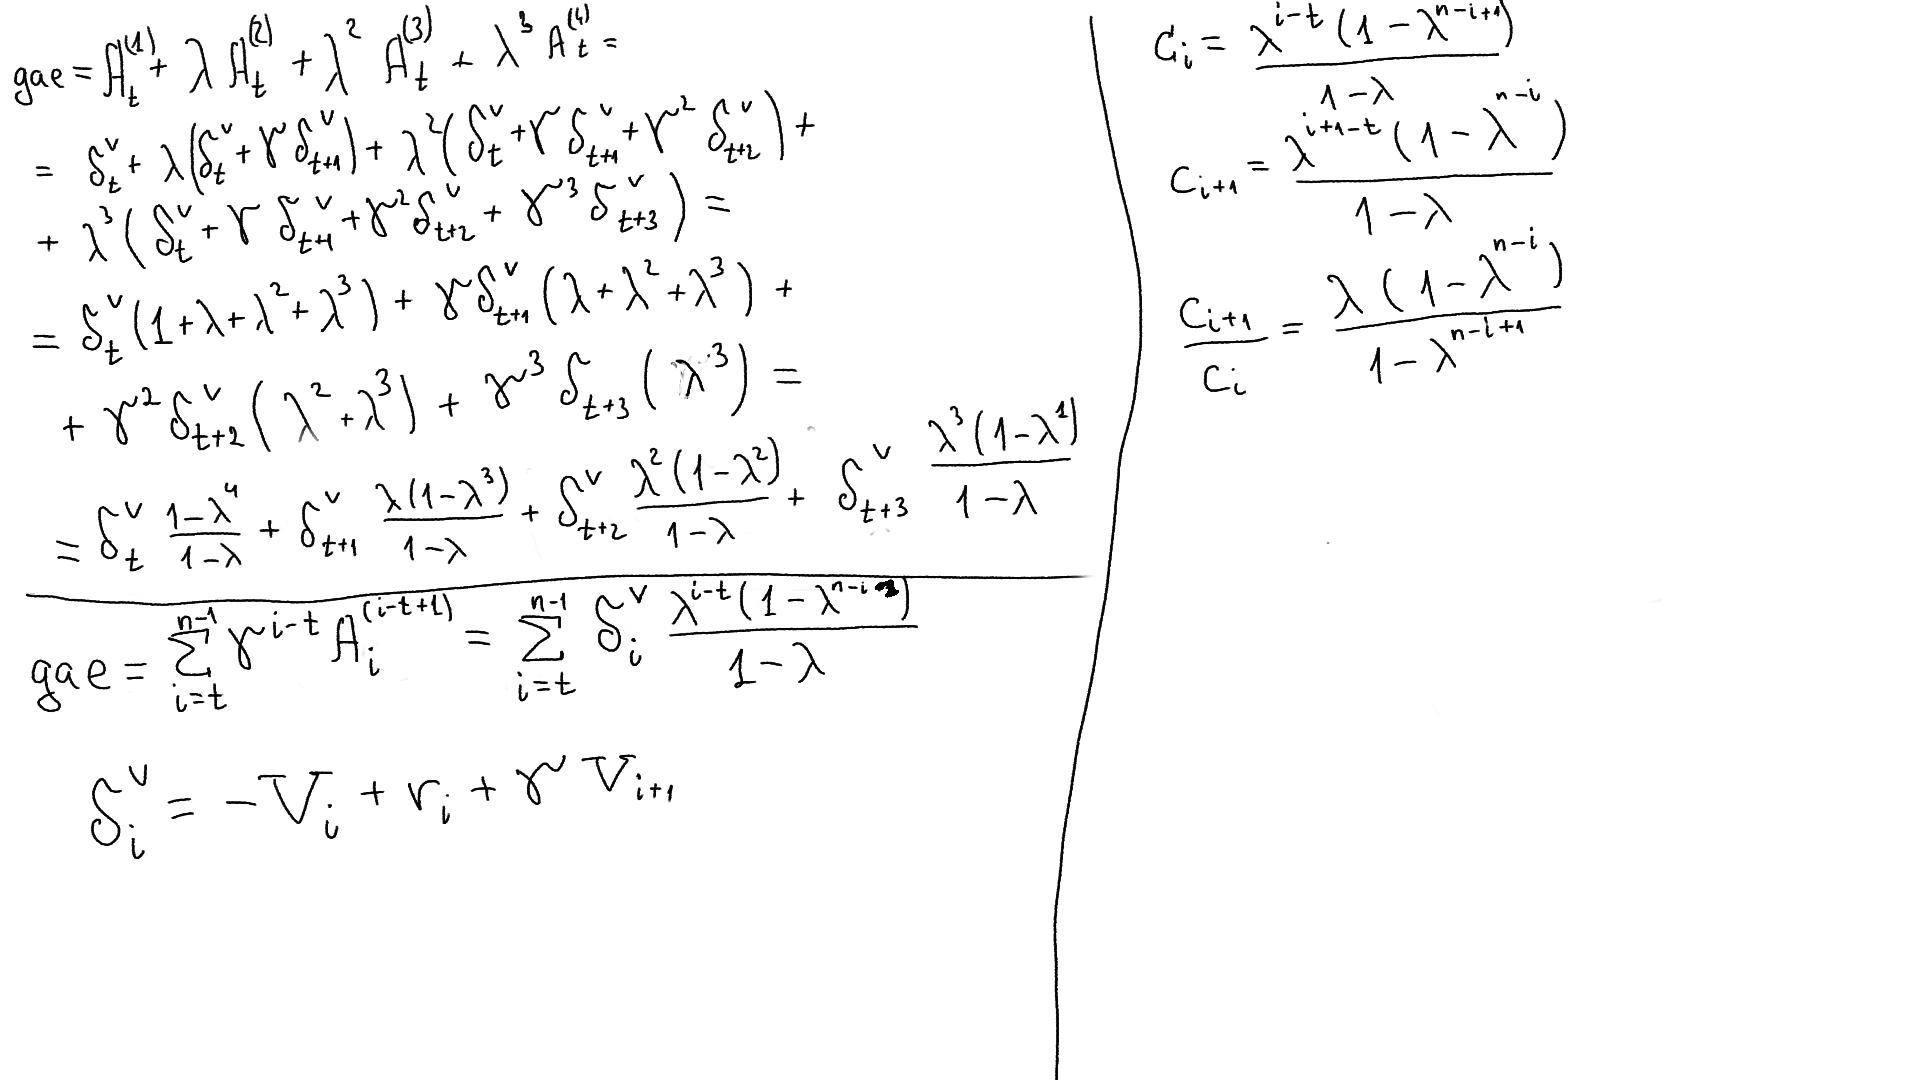 gae = A_t^(1) + λ A_t^(2) + λ^2 A_t^(3) + λ^3 A_t^(4) =
= δ_t^v + λ(δ_t^v + γ δ_{t+1}^v) + λ^2(δ_t^v + γ δ_{t+1}^v + γ^2 δ_{t+2}^v) +
+ λ^3(δ_t^v + γ δ_{t+1}^v + γ^2 δ_{t+2}^v + γ^3 δ_{t+3}^v) =
= δ_t^v (1 + λ + λ^2 + λ^3) + γ δ_{t+1}^v (λ + λ^2 + λ^3) +
+ γ^2 δ_{t+2}^v (λ^2 + λ^3) + γ^3 δ_{t+3} (λ^3) =
= δ_t^v (1-λ^4)/(1-λ) + δ_{t+1}^v λ(1-λ^3)/(1-λ) + δ_{t+2}^v λ^2(1-λ^2)/(1-λ) + δ_{t+3}^v λ^3(1-λ^1)/(1-λ)
gae = Σ_{i=t}^{n-1} γ^{i-t} A_i^{(i-t+1)} = Σ_{i=t}^{n-1} δ_i^v λ^{i-t}(1-λ^{n-i})/(1-λ)
δ_i^v = -V_i + r_i + γ V_{i+1}
C_i = λ^{i-t}(1-λ^{n-i+1})/(1-λ)
C_{i+1} = λ^{i+1-t}(1-λ^{n-i})/(1-λ)
C_{i+1}/C_i = λ(1-λ^{n-i})/(1-λ^{n-i+1})